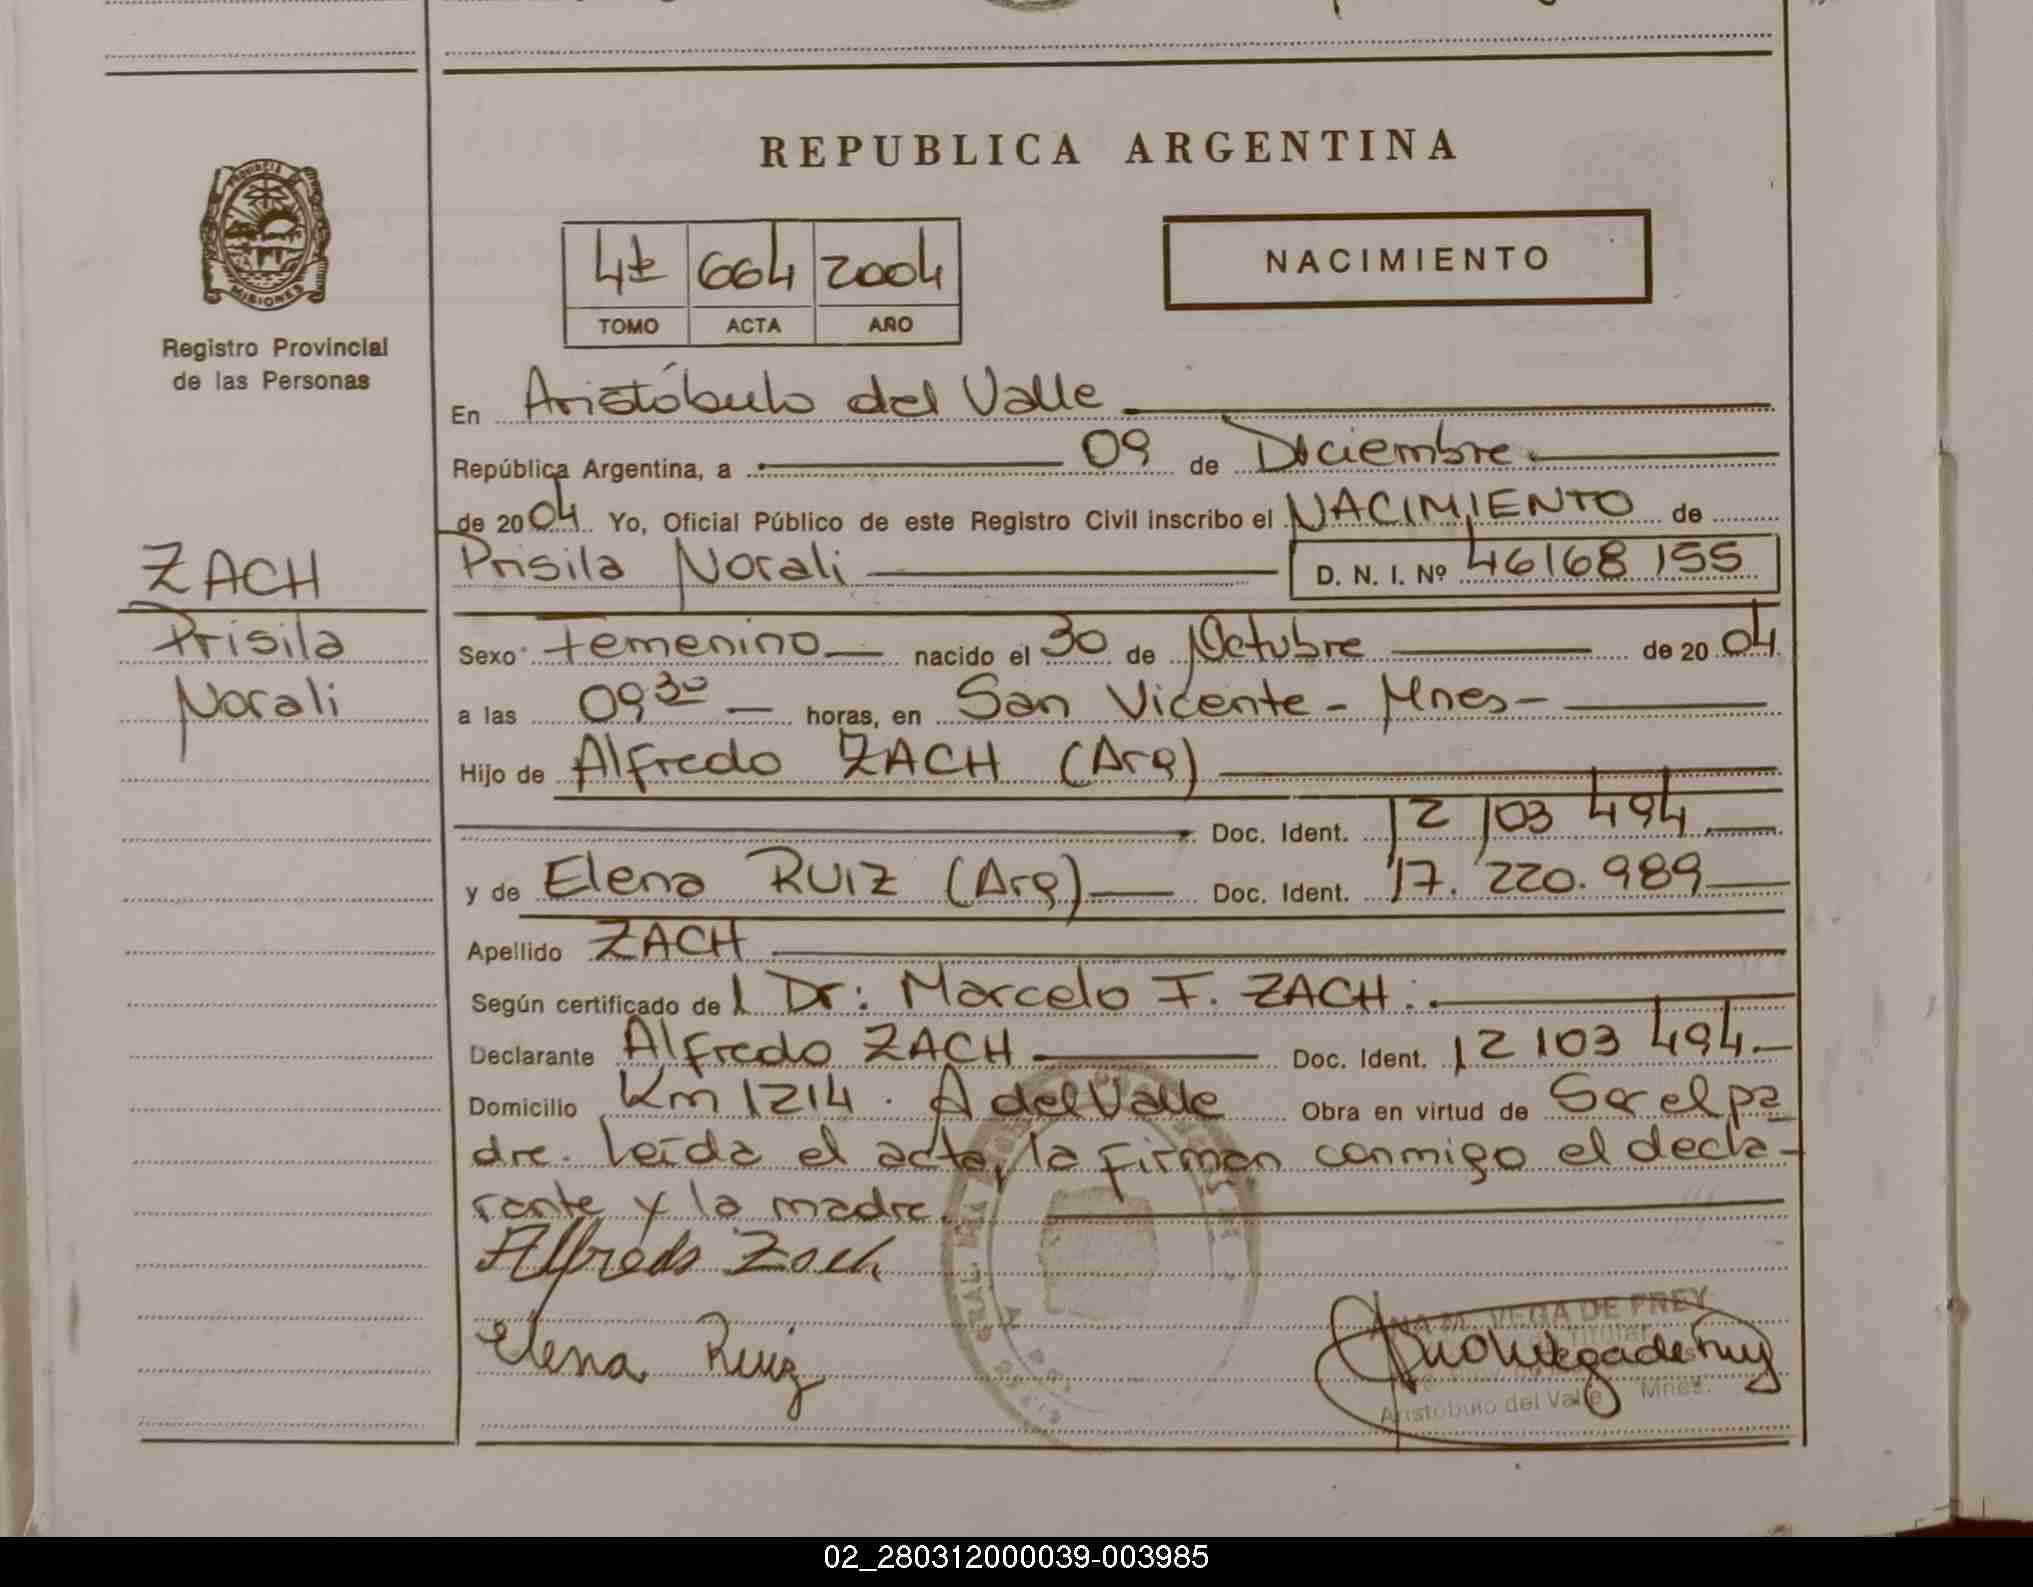 REPUBLICA ARGENTINA
PROVINCIA DE
MISIONES
Registro Provincial
de las Personas
4t 664 2004
TOMO ACTA AÑO
NACIMIENTO
En Aristóbulo del Valle
República Argentina, a 09 de Diciembre
de 2004 Yo, Oficial Público de este Registro Civil inscribo el NACIMIENTO de
Prisila Norali D. N. I. Nº 46168155
ZACH
Prisila
Norali
Sexo Femenino nacido el 30 de Octubre de 2004
a las 09 30 horas, en San Vicente - Mnes -
Hijo de Alfredo ZACH (Arg)
Doc. Ident. 12 103 494
y de Elena RUIZ (Arg) Doc. Ident. 17. 220. 989
Apellido ZACH
Según certificado del Dr: Marcelo F. ZACH.
Declarante Alfredo ZACH Doc. Ident. 12 103 494
Domicilio Km 1214. A del Valle Obra en virtud de Ser el pa
dre. Leída el acta, la firman conmigo el decla-
rante y la madre.
Alfredo Zach
Elena Ruiz
ANA M. VEGA DE FREY
Titular
Aristóbulo del Valle Mnes.
02_280312000039-003985